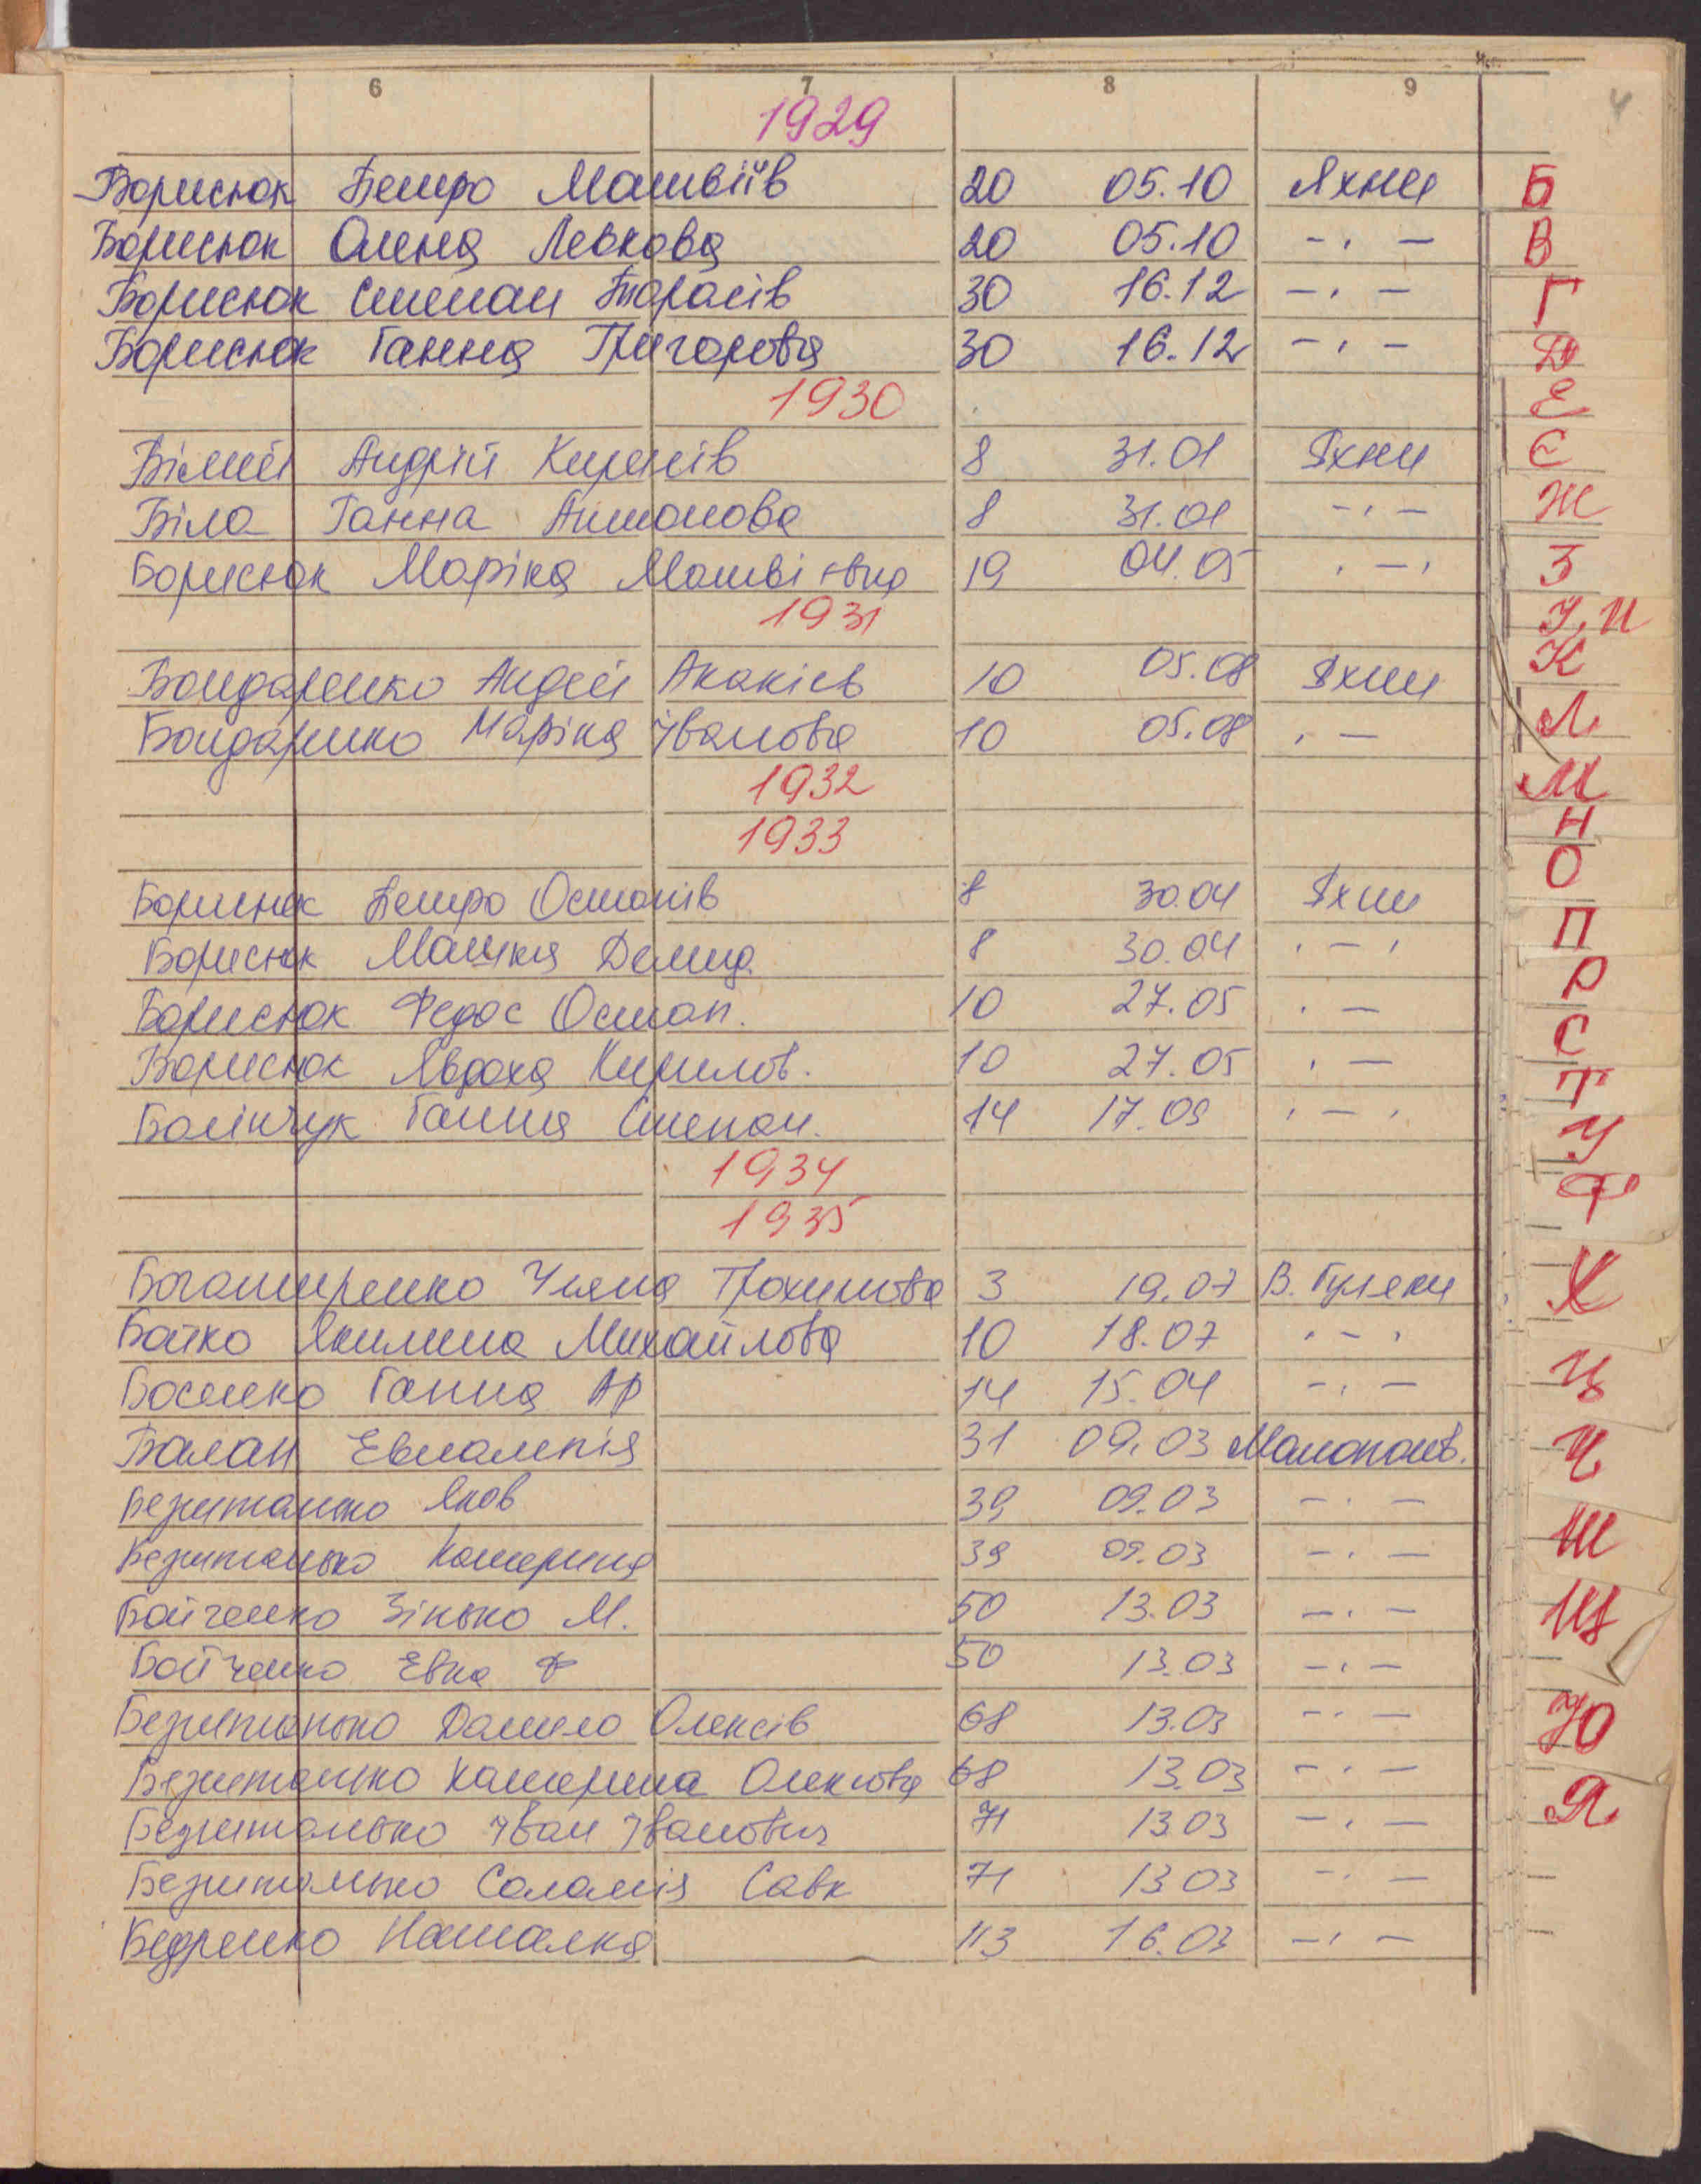 6 7 8 9
4
1929
Борисюк Петро Матвіїв 20 05.10 Яхни
Борисюк Олена Левкова 20 05.10 - . -
Борисюк Степан Тарасів 30 16.12 - . -
Борисюк Ганна Григорова 30 16.12 - . -
1930
Білий Андрій 8 31.01 Яхни
Біла Ганна Антонова 8 31.01 - . -
Борисюк Маріка 19 04.05 . - .
1931
Бондаренко Андрій Акакіев 10 05.08 Яхни
Бондаренко Маріка Іванова 10 05.08 . -
1932
1933
Борисюк Петро Остапів 8 30.04 Яхни
Борисюк Демид. 8 30.04 . - .
Борисюк Федос Остап. 10 27.05 . -
Борисюк Явдоха Кирилов. 10 27.05 . -
Ганна Степан. 14 17.09 . - .
1934
1935
Богатиренко Уляна Трохимова 3 19.07 В. Гуляки
Бойко Якилина Михайлова 10 18.07 . - .
Босенко Ганна АР 14 15.04 - . -
Балан Евлампія 31 09.03 Малополов.
Безпитанько Яков 39 09.03 - . -
Безпитанько Катерина 39 09.03 - . -
Бойченко Зінько М. 50 13.03 - . -
Бойченко Евка Ф 50 13.03 - . -
Безпитанько Данило Олексів 68 13.03 - . -
Безпитанько Катерина 68 13.03 - . -
Безпитанько Іван Іванович 71 13.03 - . -
Безпитанько Соломія Савк 71 13.03 - . -
Бедренко Наталка 113 16.03 - . -
Б
В
Г
Д
Е
Є
Ж
З
І, И
К
Л
М
Н
О
П
Р
С
Т
У
Ф
Х
Ц
Ч
Ш
Щ
Ю
Я